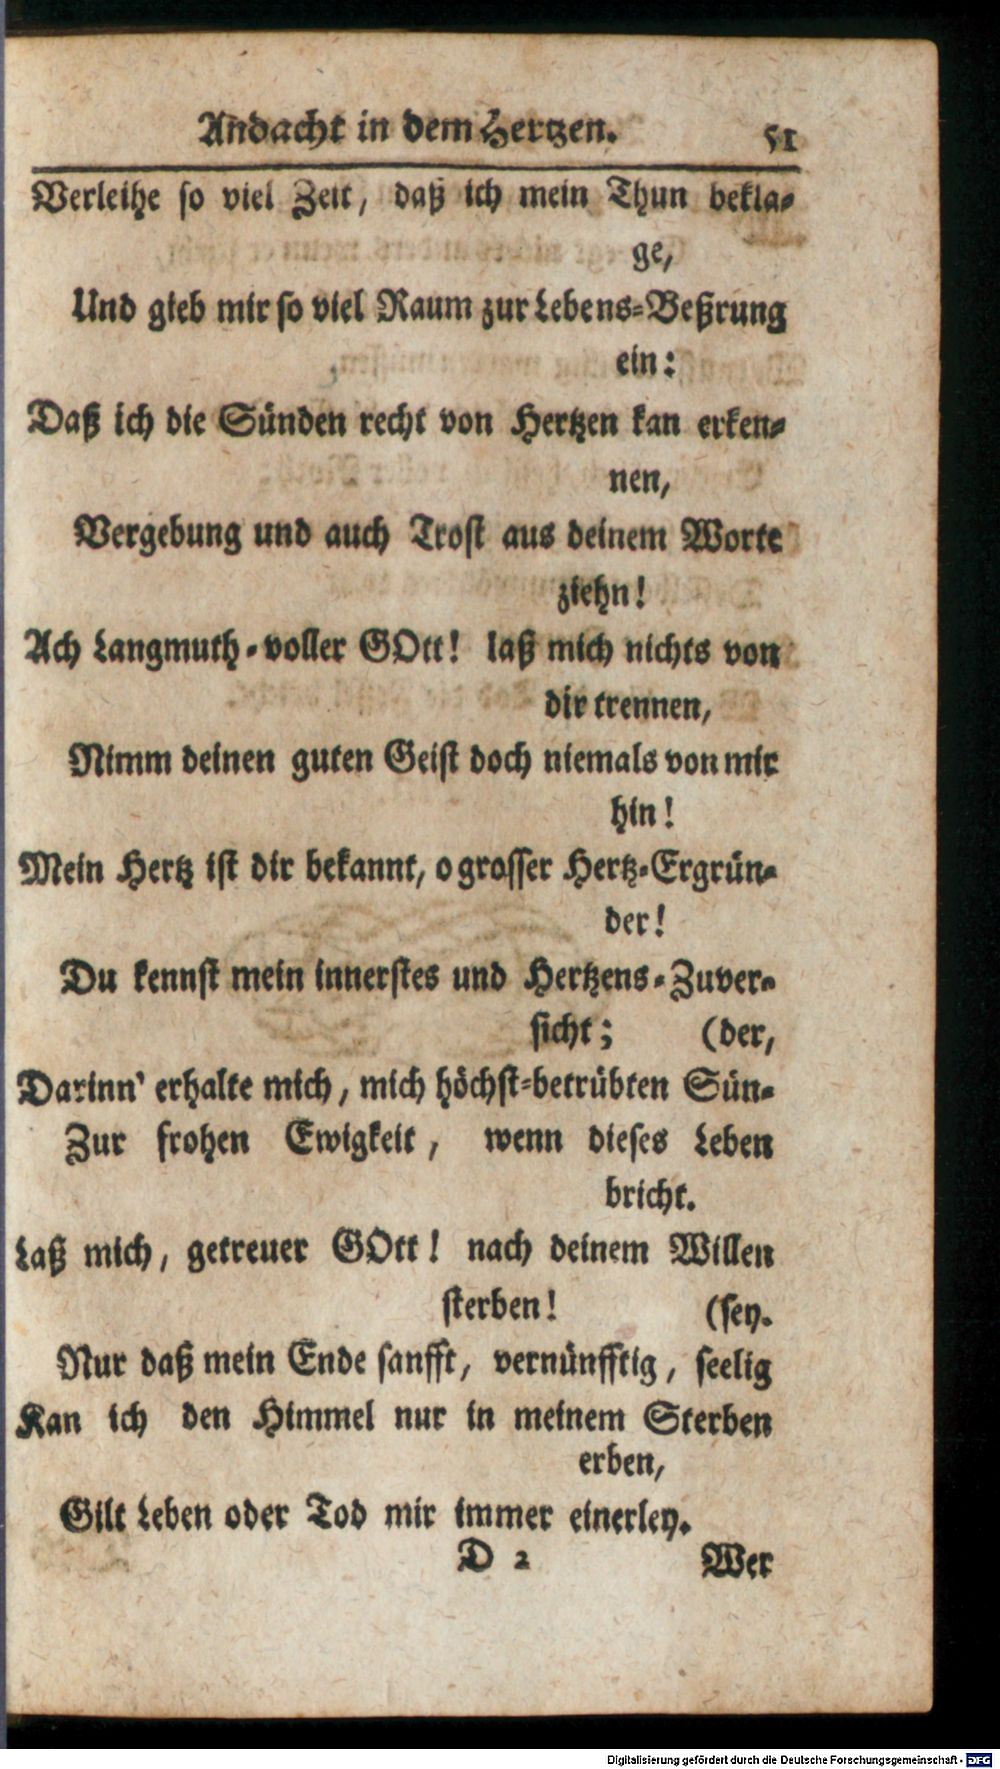 Andacht in dem Hertzen. 51
Verleihe so viel Zeit, daß ich mein Thun bekla-
ge,
Und gieb mir so viel Raum zur Lebens-Beßrung
ein:
Daß ich die Sünden recht von Hertzen kan erken-
nen,
Vergebung und auch Trost aus deinem Worte
ziehn!
Ach Langmuth-voller GOtt! laß mich nichts von
dir trennen,
Nimm deinen guten Geist doch niemals von mir
hin!
Mein Hertz ist dir bekannt, o grosser Hertz-Ergrün-
der!
Du kennst mein innerstes und Hertzens-Zuver-
sicht; (der,
Darinn' erhalte mich, mich höchst-betrübten Sün-
Zur frohen Ewigkeit, wenn dieses Leben
bricht.
Laß mich, getreuer GOtt! nach deinem Willen
sterben! (sey.
Nur daß mein Ende sanfft, vernünfftig, seelig
Kan ich den Himmel nur in meinem Sterben
erben,
Gilt Leben oder Tod mir immer einerley.
D 2 Wer
Digitalisierung gefördert durch die Deutsche Forschungsgemeinschaft - DFG